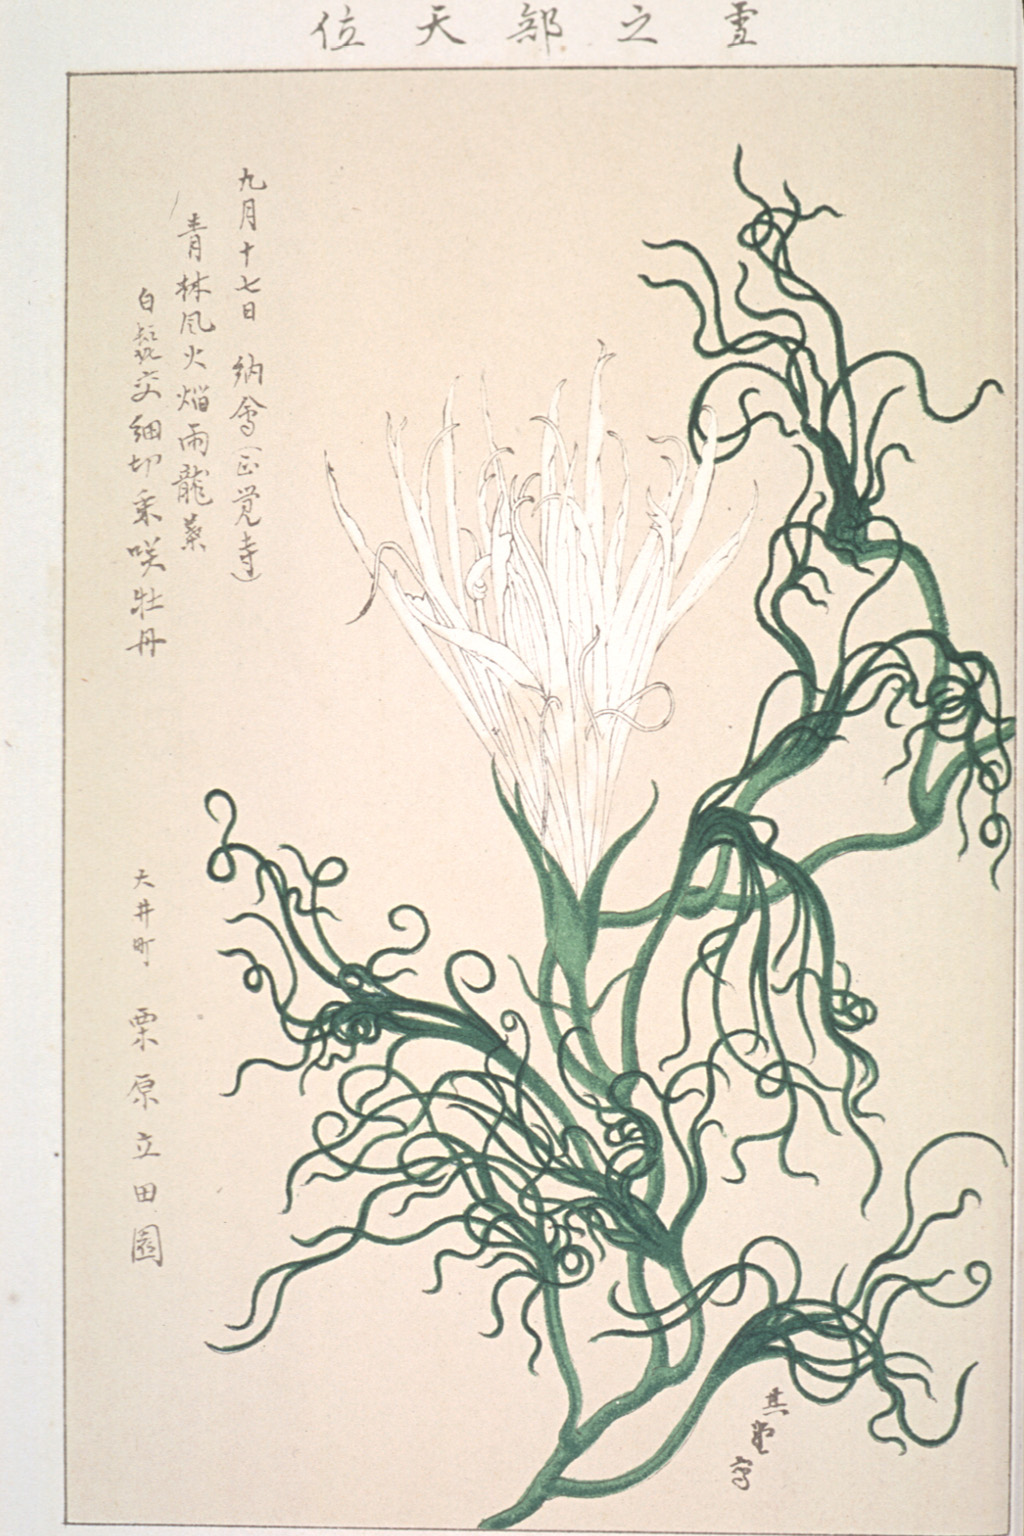 雪之部天位
九月十七日 納會(正覚寺)
青林風火焔雨龍葉
白髭交細切采咲牡丹
大井町 栗原立田園
寫